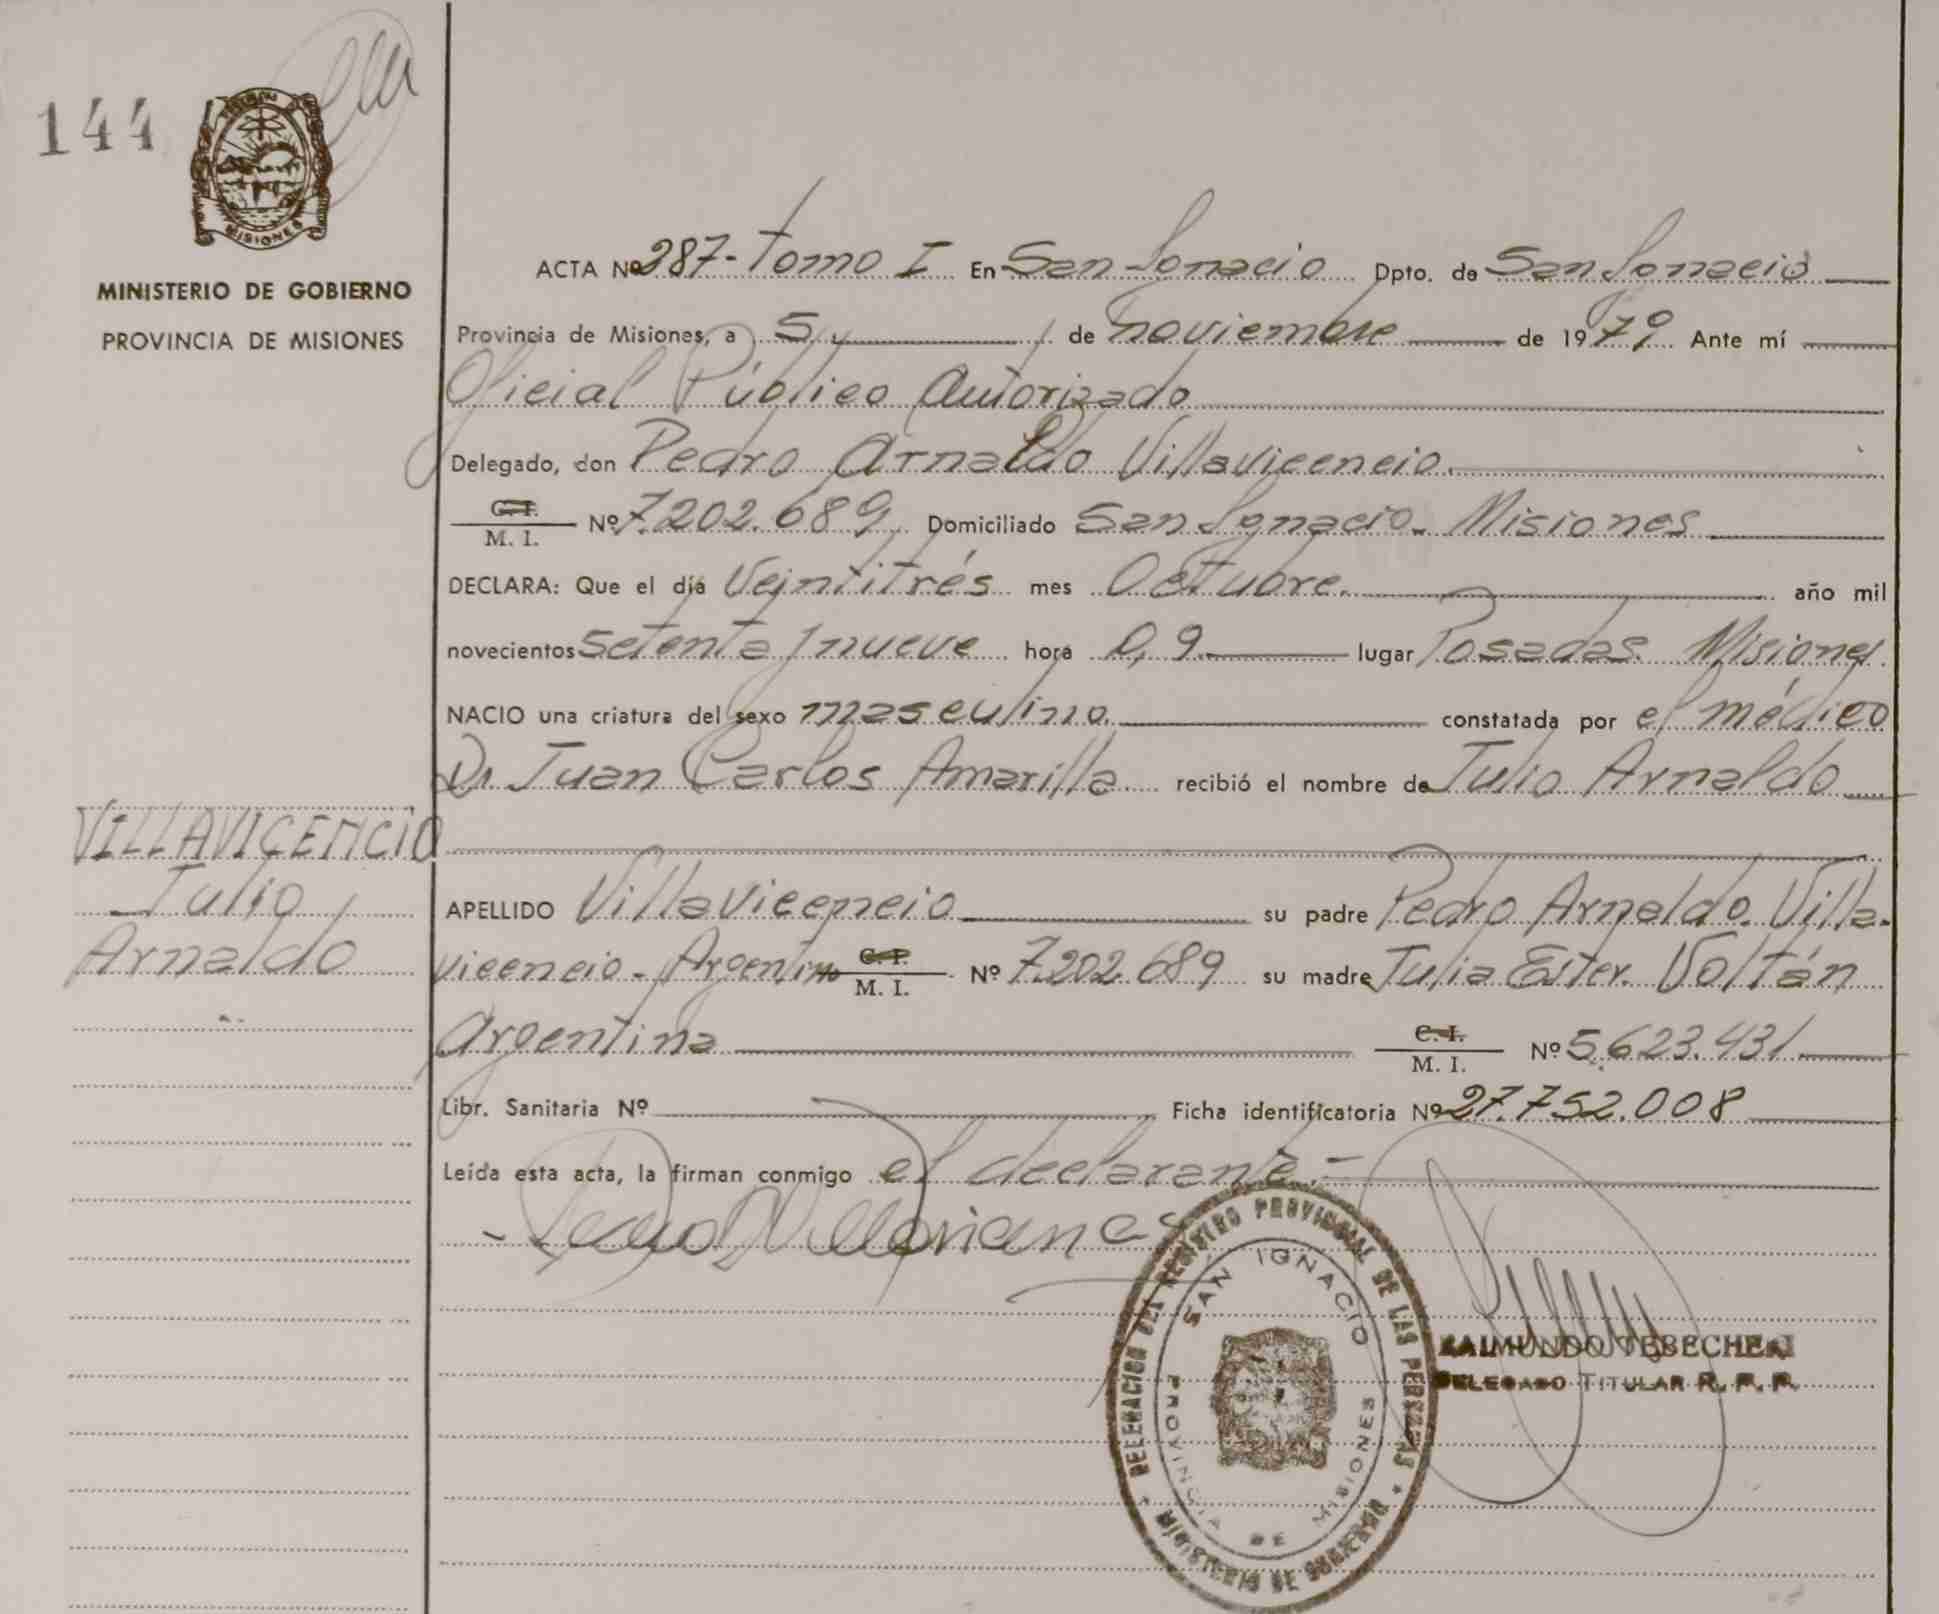 144
MISIONES
MINISTERIO DE GOBIERNO
PROVINCIA DE MISIONES
VILLAVICENCIO
Julio
Arnaldo
ACTA Nº 287-tomo I En San Ignacio Dpto. de San Ignacio
Provincia de Misiones, a 5 de noviembre de 1979. Ante mí
Oficial Público Autorizado
Delegado, don Pedro Arnaldo Villavicencio.
C. I.
M. I. Nº 7.202.689 Domiciliado San Ignacio. Misiones
DECLARA: Que el día Veintitrés mes Octubre. año mil
novecientos setenta y nueve hora 0,9 lugar Posadas. Misiones
NACIO una criatura del sexo masculino. constatada por el médico
Dr Juan Carlos Amarilla recibió el nombre de Julio Arnaldo
APELLIDO Villavicencio su padre Pedro Arnaldo. Villa-
vicencio - Argentino C. I. M. I. Nº 7.202.689 su madre Julia Ester. Voltán
Argentina C. I. M. I. Nº 5.623.431
Libr. Sanitaria Nº Ficha identificatoria Nº 27.752.008
Leída esta acta, la firman conmigo el declarante.-
DELEGACION DEL REGISTRO PROVINCIAL DE LAS PERSONAS
MINISTERIO DE GOBIERNO
SAN IGNACIO
PROVINCIA DE MISIONES
RAIMUNDO TEBECHERI
DELEGADO TITULAR R. P. P.